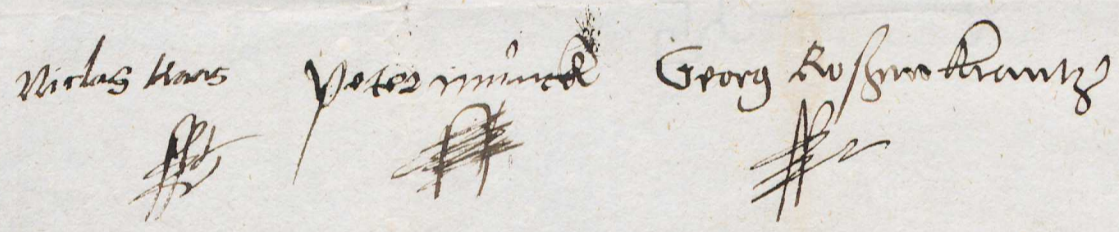 Niclas Kaas Peter Münck Georg Roßennkrantz